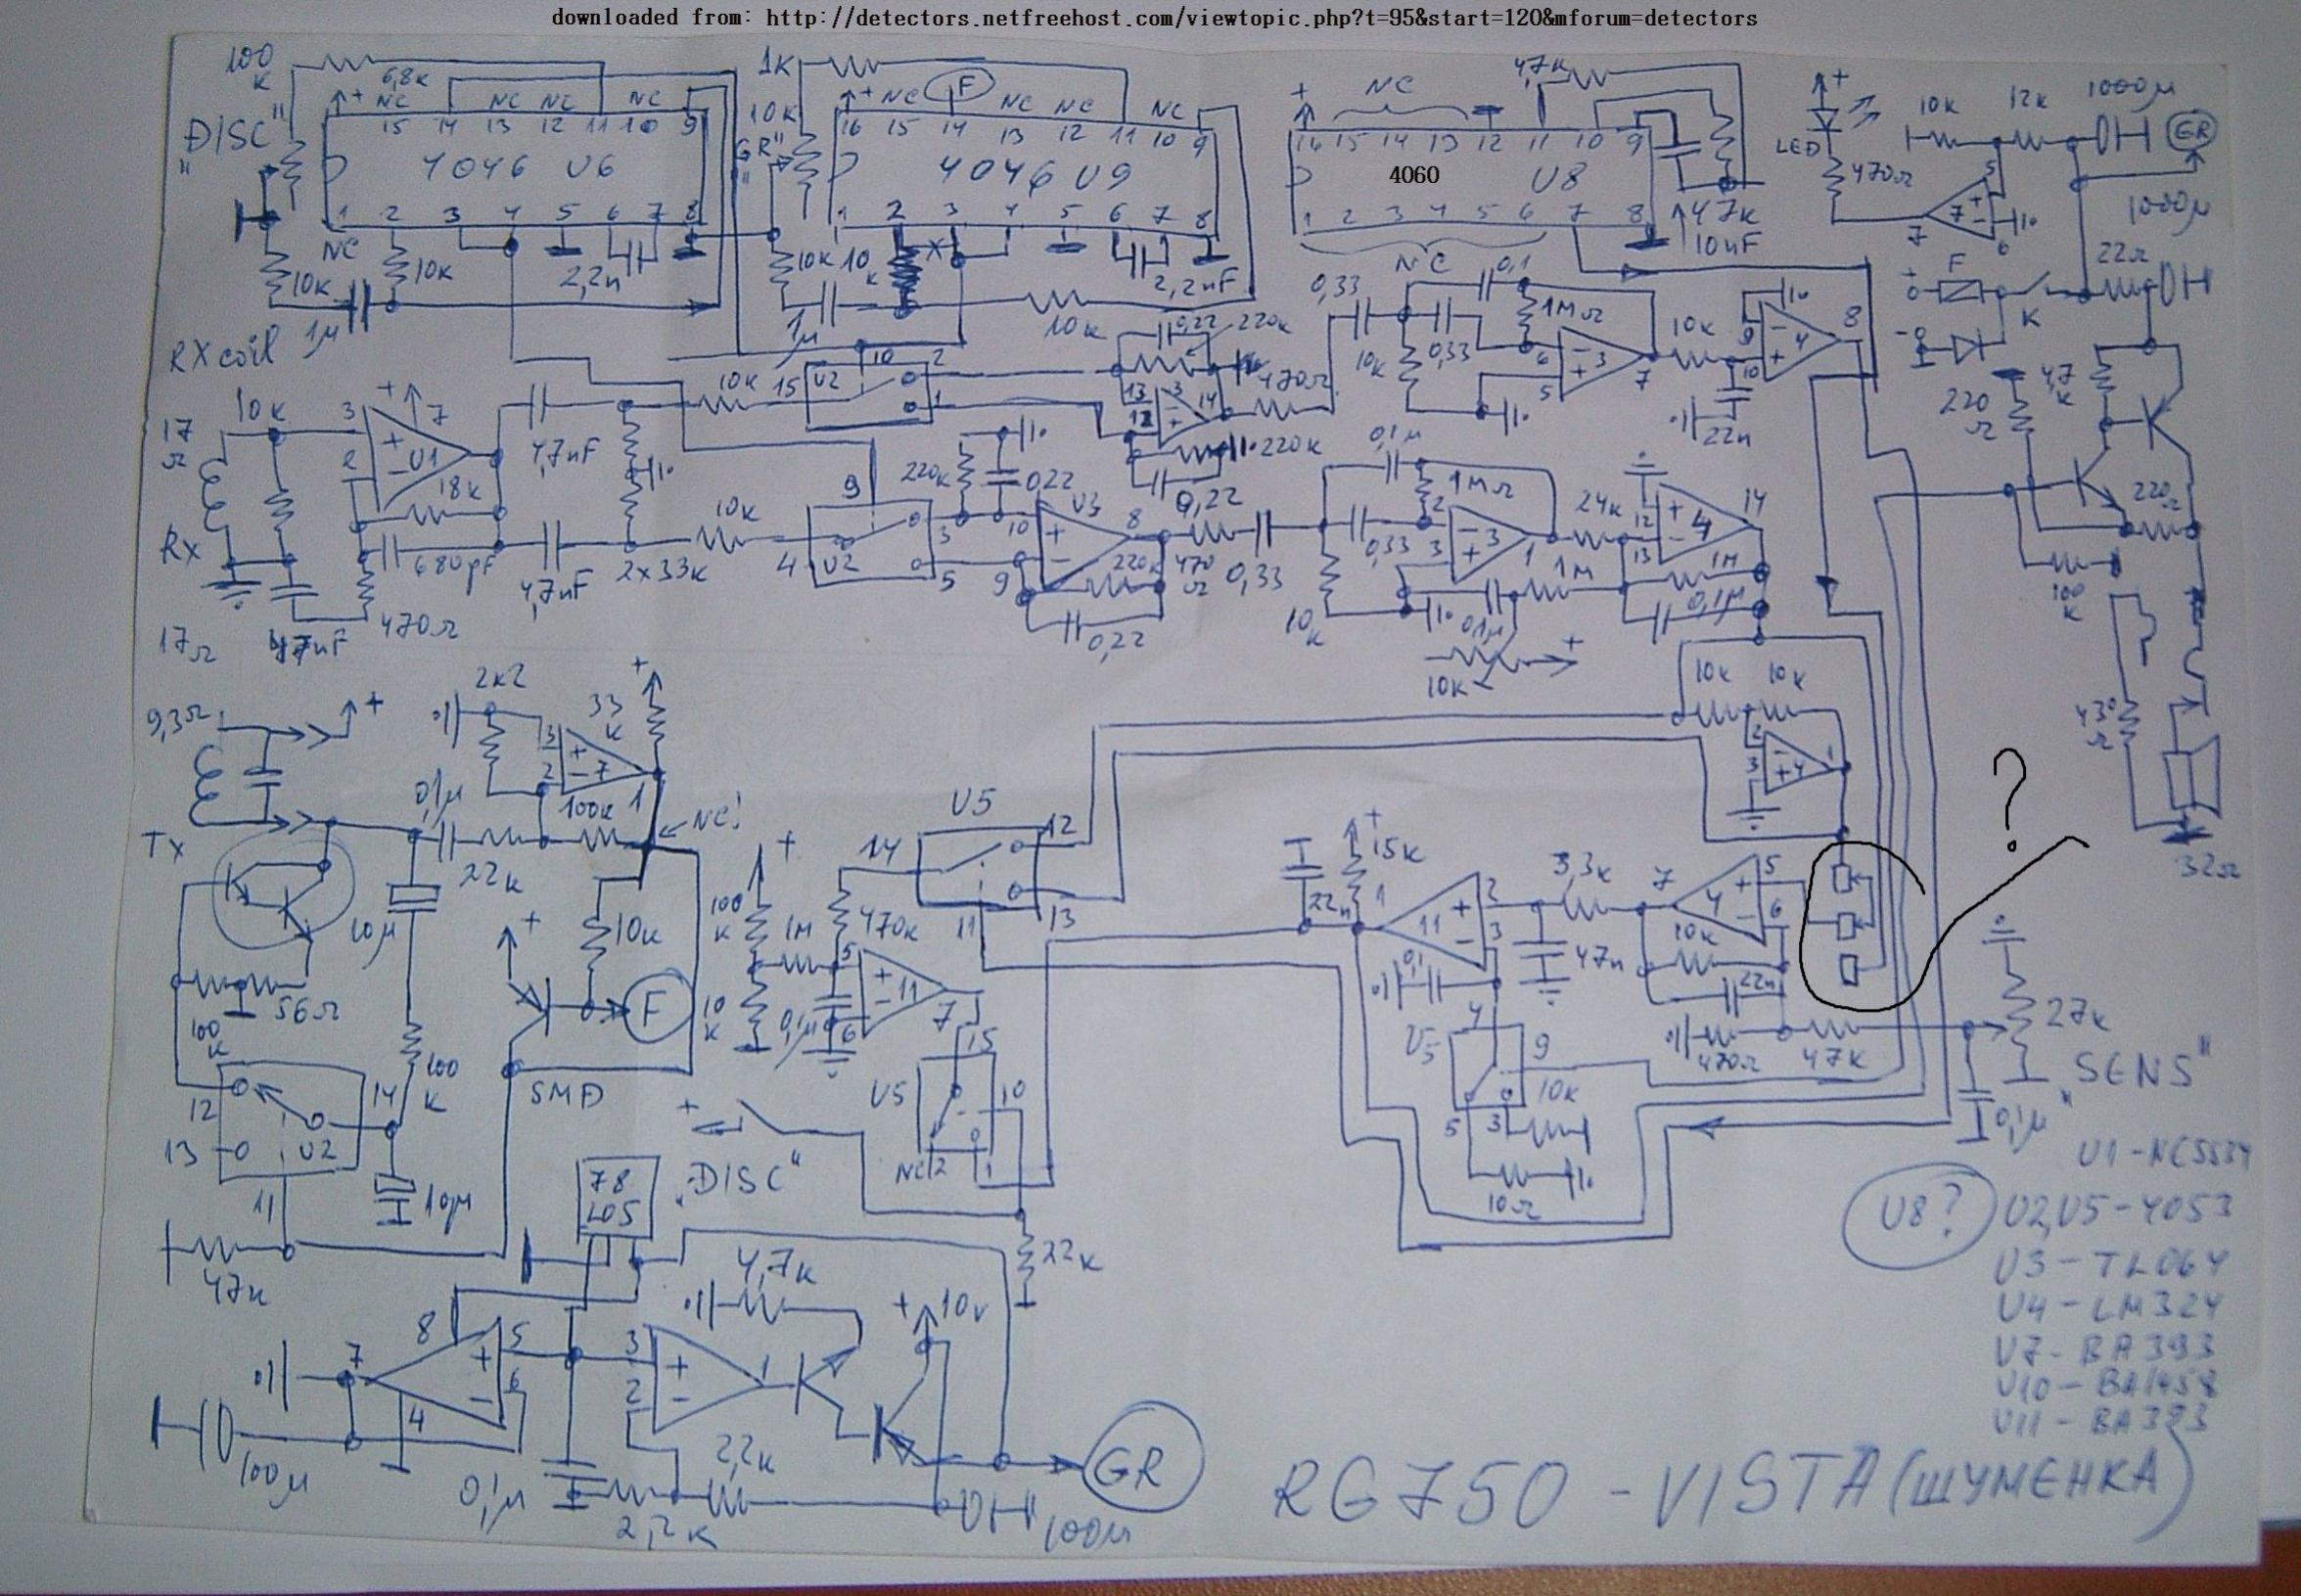 downloaded from: http://detectors.netfreehost.com/viewtopic.php?t=95&start=120&mforum=detectors
100 K
6,8K
1K
F
NC
4,7K
+
10K 12K 1000μ
GR
+ NC NC NC NC
+ NC NC NC NC
"DISC"
15 14 13 12 11 10 9
10K
16 15 14 13 12 11 10 9
16 15 14 13 12 11 10 9
LED
470Ω
4046 U6
"GR"
4046 U9
4060 U8
5
7
6
7
1000μ
1 2 3 4 5 6 7 8
1 2 3 4 5 6 7 8
1 2 3 4 5 6 7 8
47K
10nF
NC
10K
10K
2,2n
10K
10K
X
2,2nF
NC
F
22Ω
K
1μ
1μ
10K
0,22
220K
0,33
0,1
1MΩ
10K
0,33
10K
RX coil
10K
17Ω
3
2
+
7
U1
18K
4,7nF
10K
15
U2
10
2
1
13
12
3
14
470Ω
220K
0,22
6
5
3
7
9
10
4
8
22n
220Ω
4,7K
220Ω
100K
RX
680pF
4,7nF
2x33K
10K
4
U2
9
3
5
220K
0,22
10
9
U3
8
220K
470Ω
0,22
0,33
0,1μ
1MΩ
0,33
2
3
3
1
24K
12
13
4
14
1M
1M
0,1μ
0,1μ
10K
10K
17Ω
47nF
470Ω
2K2
33K
+
9,3Ω
+
3
2
7
1
100K
0,1μ
NC!
22K
TX
10K 10K
2
3
4
1
43Ω
32Ω
?
U5
14
12
13
11
+
100K
1M
470K
10K
0,1μ
5
6
11
7
10μ
+
10K
F
56Ω
100K
100K
SMD
+
15K
22n
1
11
2
3
3,3K
7
4
5
6
10K
22n
47n
0,1
4
U5
9
10K
5
3
10Ω
470Ω
47K
27K
"SENS"
0,1μ
12
13
14
U2
11
10μ
47K
15
U5
10
NC 2
1
+
"DISC"
78L05
22K
4,7K
+ 10V
8
7
5
6
4
3
2
1
100μ
0,1μ
2,2K
2,2K
GR
100μ
U1-NC5534
U8?
U2,U5-4053
U3-TL064
U4-LM324
U7-BA393
U10-BA1458
U11-BA393
RG750-VISTA (ШУМЕНКА)